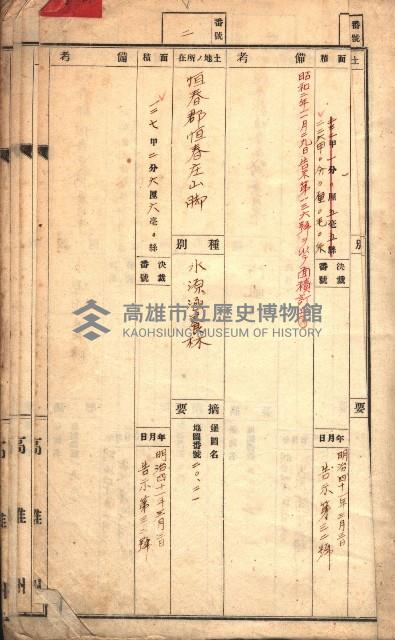 番號
番號
二
土
面積
備考
土地ノ所在
面積
備考
昭和二年一一月二九日告示第一三六號ヲ以テ面積訂正
恒春郡恒春庄山脚
一二七甲二分六厘六毫〇絲
別
種別
水源涵養林
決裁番號
決裁番號
要
摘要
堡圖名
地圖番號二〇、二一
年月日
明治四十一年三月三日
告示第三二號
年月日
明治四十一年三月三日
告示第三二號
高雄市立歷史博物館
KAOHSIUNG MUSEUM OF HISTORY
高雄州